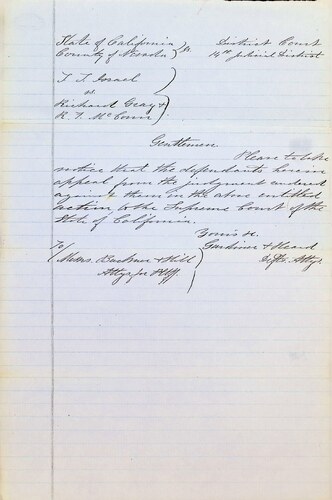 State of California } ss District Court
County of Nevada 14th Judicial District
T. T. Israel
vs
Richard Gray &
Gentlemen
Please to take
notice that the defendants herein
appeal from the judgment entered
against them in the above entitled
action to the Supreme Court of the
State of California.
Yours &c
To Gardiner &
Messrs. & Hill Defts. Attys
Attys for Plff.